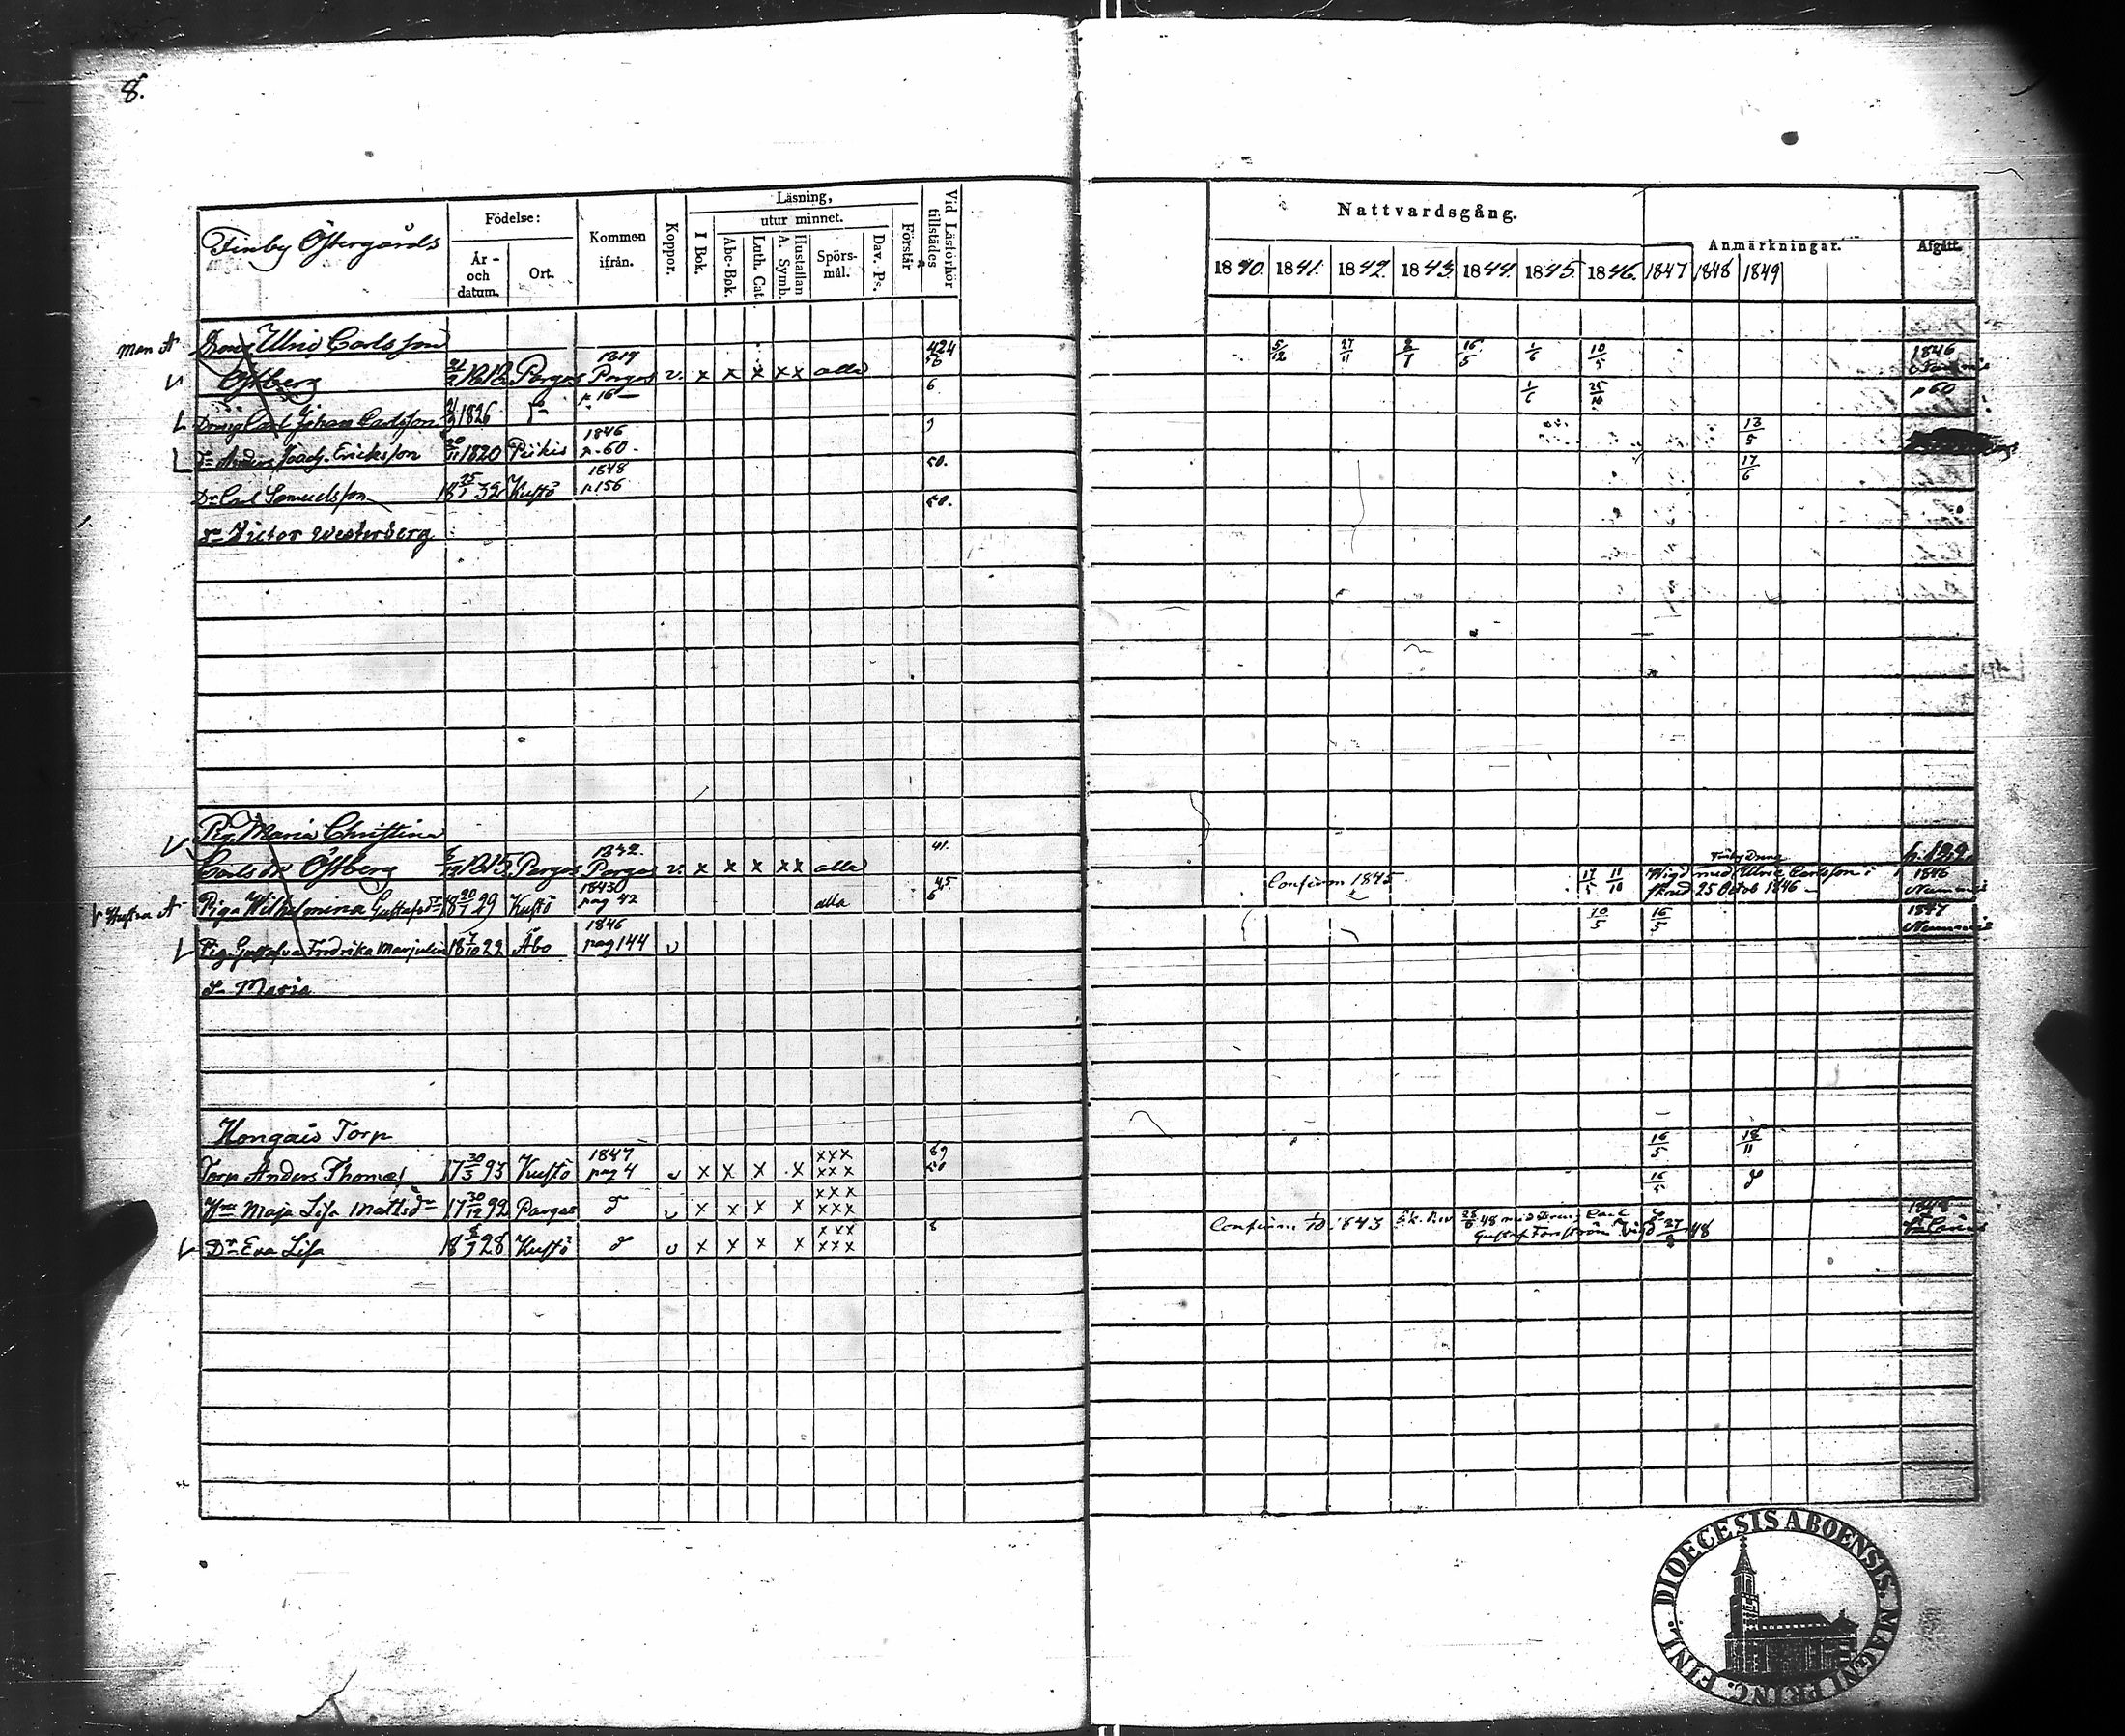 8.
Finby Östergårds
Födelse:
År - och datum.
Ort.
Kommen ifrån.
Koppor.
Läsning,
I Bok.
utur minnet.
Abc-Bok.
Luth. Cat.
Hustaflan A. Symb.
Spörsmål.
Dav. Ps.
Förstår
Vid Läsförhör tillstädes
Nattvardsgång.
1840. 1841. 1842. 1843. 1844. 1845. 1846. 1847 1848 1849
Anmärkningar.
Afgått.
Man A Dräng Ulric Carlsson 424 5/12 27/11 16/5 1/6 10/5 1846
Östberg 1818 Pargas 1817 Pargas v. x x x x x alla 56
Dräng Carl Johan Carlsson 1826 D:o p. 16 6 1/6 25/10 p 60
D:o Anders Joach. Ericksson 20/11 1820 Piikis 1846 p. 60. 9 13/5
Dr Carl Samuelsson 18 25/1 32 Kustö 1848 p. 156 50. 17/6
D:o Victor Westerberg 50.
Pig. Maria Christina
Carls dr Östberg 1815 Pargas 1842. Pargas v. x x x x x alla 41. p. 129.
Hustru A Piga Wilhelmina Gustafsdr 18 20/1 29 Kustö 1843 pag 42 alla 45 6 Confirm 1845 17/5 11/10 Wigd med Finby Dreng Ulric Carlsson i 1846
Kustö 25 Octob 1846 Nummis
Pig. Gustafva Fredrika Marjulin 18 7/10 22 Åbo 1846 pag 144 v 10/5 16/5 1847 Nummis
D:o Maria
Hongais Torp
Torp Anders Thomas 17 30/3 93 Kustö 1847 pag 4 v x x x x xxx xxx 89 50 16/5 18/11
Hru Maja Lisa Mattsdr 17 30/12 92 Pargas d:o v x x x x xxx xxx 16/5 d:o
Dr Eva Lisa 18 28 Kustö d:o v x x x x xxx xxx 8 Confirm 1/10 1843 48 med Dräng Carl 1848
Gustaf Forsström Vigd 27/8 48 St Carins
DIOECESIS ABOENSIS. MAGNI PRINC. FINL.